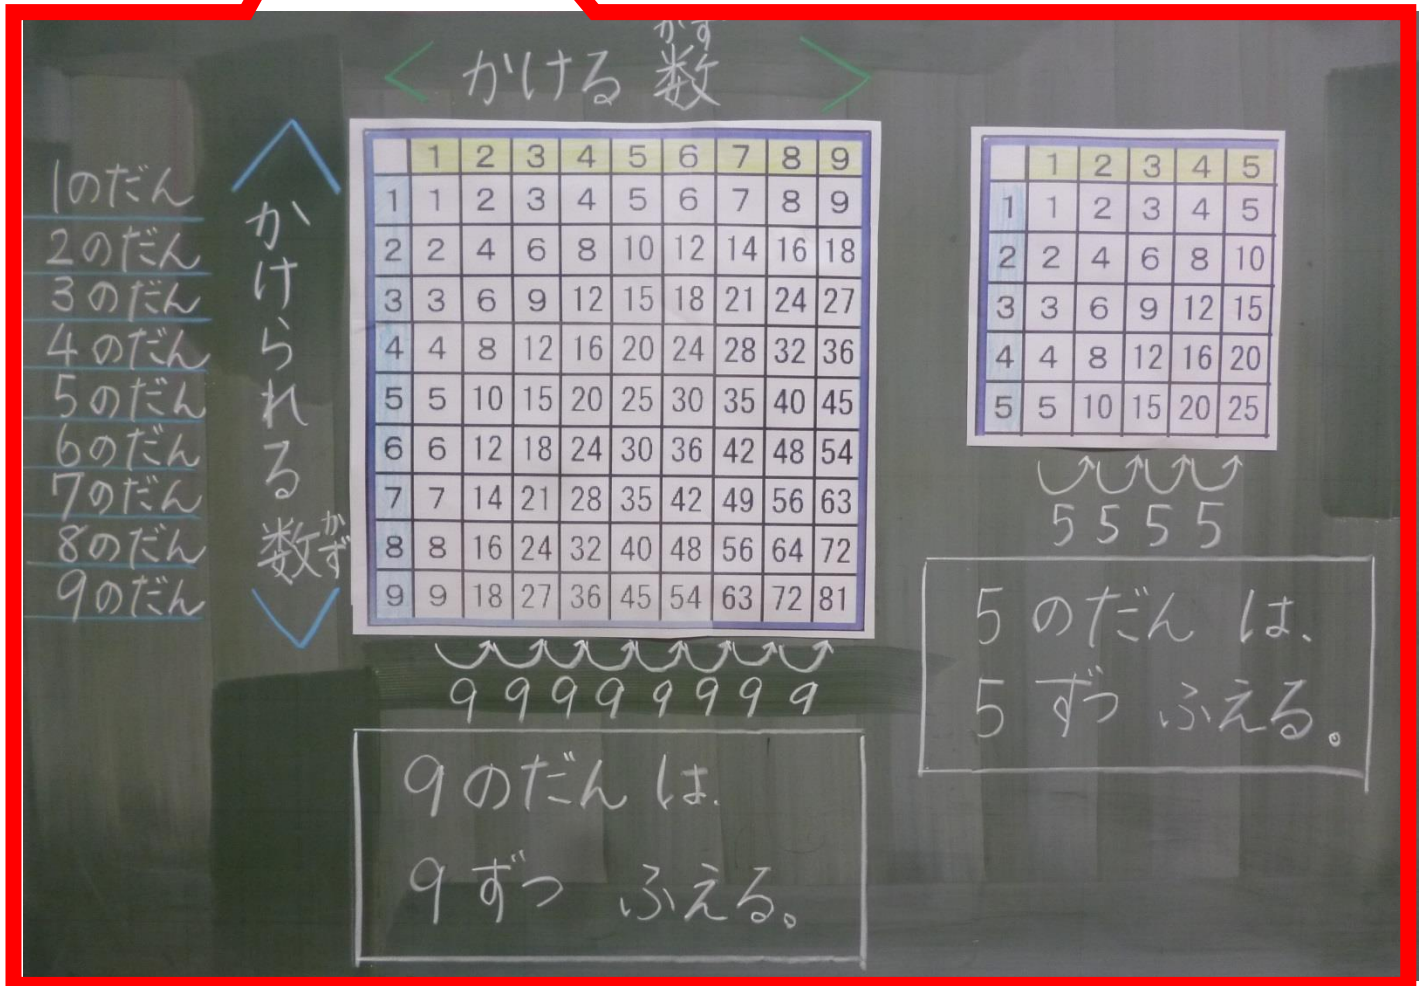 かける数
かず
1のだん
2のだん
3のだん
4のだん
5のだん
6のだん
7のだん
8のだん
9のだん
かけられる数
かず
1 2 3 4 5 6 7 8 9
1 1 2 3 4 5 6 7 8 9
2 2 4 6 8 10 12 14 16 18
3 3 6 9 12 15 18 21 24 27
4 4 8 12 16 20 24 28 32 36
5 5 10 15 20 25 30 35 40 45
6 6 12 18 24 30 36 42 48 54
7 7 14 21 28 35 42 49 56 63
8 8 16 24 32 40 48 56 64 72
9 9 18 27 36 45 54 63 72 81
9 9 9 9 9 9 9 9
9のだんは、
9ずつ ふえる。
1 2 3 4 5
1 1 2 3 4 5
2 2 4 6 8 10
3 3 6 9 12 15
4 4 8 12 16 20
5 5 10 15 20 25
5 5 5 5
5のだんは、
5ずつ ふえる。